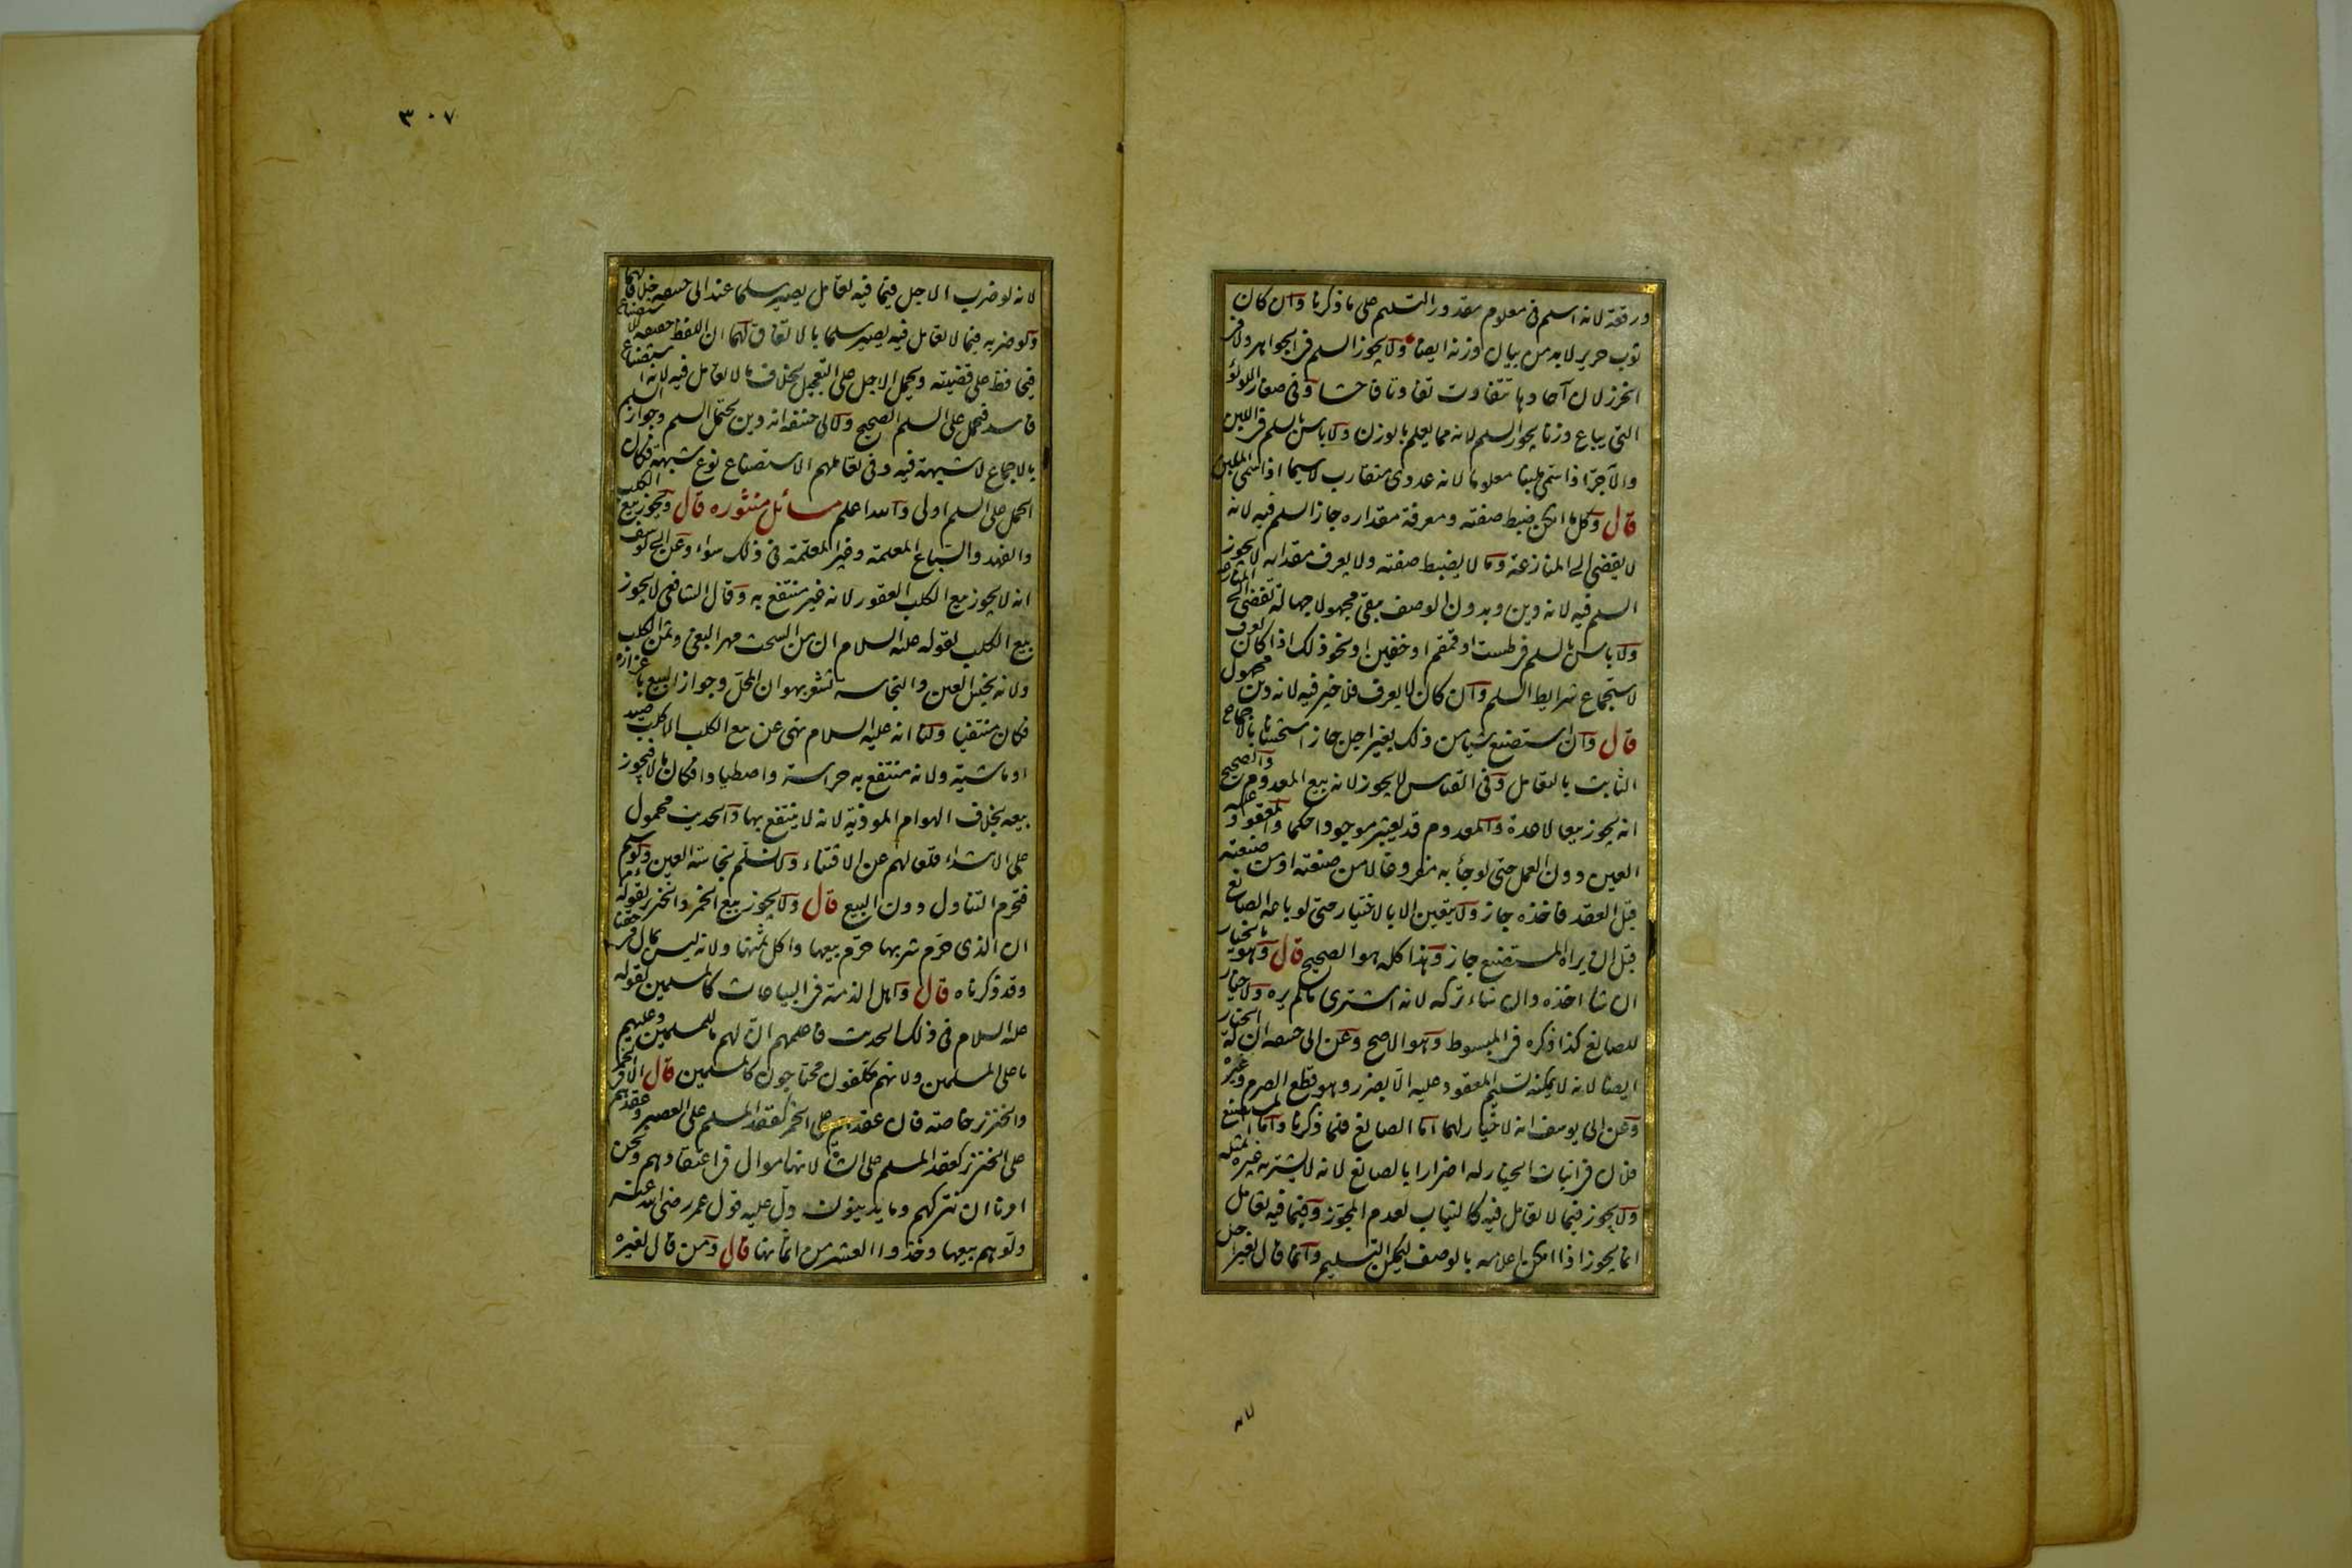 ورقعة لانه اسلم فى معلوم مقدور التسليم على ما ذكرنا وان كان
ثوب حرير لابد من بيان وزنه ايضا ولا يجوز السلم فى الجواهر ولا فى
الخرز لان آحادها تتفاوت تفاوتا فاحشا وفى صغار اللولؤ
التى يباع وزنا يجوز السلم لانه مما يعلم بالوزن ولا باس بالسلم فى اللبن
والآجر اذا سمى ملبنا معلوما لانه عددى متقارب لا سيما اذا سمى الملبن
قال وكل ما امكن ضبط صفته ومعرفة مقداره جاز السلم فيه لانه
لا يفضى الى المنازعة وما لا يضبط صفته ولا يعرف مقداره لا يجوز
السلم فيه لانه دين وبدون الوصف يبقى مجهولا جهالة تفضى الى المنازعة
ولا باس بالسلم فى طست او قمقم او خفين او نحو ذلك اذا كان يعرف
لاستجماع شرايط السلم وان كان لا يعرف فلا خير فيه لانه دين مجهول
قال وان استصنع شيا من ذلك بغير اجل جاز استحسانا بالاجماع
الثابت بالتعامل وفى القياس لا يجوز لانه بيع المعدوم والصحيح
انه يجوز بيعا لا عدة والمعدوم قد يعتبر موجودا حكما والمعقود عليه
العين دون العمل حتى لو جأ به مفروغا لا من صنعته او من صنعته
قبل العقد فاخذه جاز ولا يتعين الا بالاختيار حتى لو باعه الصانع
قبل ان يراه المستصنع جاز وهذا كله هو الصحيح قال وهو بالخيار
ان شأ اخذه وان شاء تركه لانه اشترى ما لم يره ولا خيار
للصانع كذا ذكره فى المبسوط وهو الاصح وعن ابى حنيفه ان له الخيار
ايضا لانه لا يمكنه تسليم المعقود عليه الا بضرر وهو قطع الصرم وغيره
وعن ابى يوسف انه لا خيار لهما اما الصانع فلما ذكرنا واما المستصنع
فلان فى اثبات الخيار له اضرارا بالصانع لانه لا يشتريه غيره بمثله
ولا يجوز فيما لا تعامل فيه كالثياب لعدم المجوز وفيما فيه تعامل
انما يجوز اذا امكن اعلامه بالوصف ليمكن التسليم وانما قال بغير اجل
لانه
٣٠٧
لانه لو ضرب الاجل فيما فيه تعامل يصير سلما عند ابى حنيفه خلافا لهما
ولو ضربه فيما لا تعامل فيه يصير سلما بالاتفاق لهما ان اللفظ حقيقه للاستصناع
فيحافظ على قضيته ويحمل الاجل على التعجيل بخلاف ما لا تعامل فيه لانه استصناع
فاسد فيحمل على السلم الصحيح ولابى حنيفه انه دين يحتمل السلم وجواز السلم
بالاجماع لا شبهة فيه وفى تعاملهم الاستصناع نوع شبهة فكان
الحمل على السلم اولى والله اعلم مسائل منثوره قال ويجوز بيع الكلب
والفهد والسباع المعلمة وغير المعلمة فى ذلك سواء وعن ابى يوسف
انه لا يجوز بيع الكلب العقور لانه غير منتفع به وقال الشافعى لا يجوز
بيع الكلب لقوله عليه السلام ان من السحت مهر البغى وثمن الكلب
ولانه نجس العين والنجاسه تشعر بهوان المحل وجواز البيع باعزازه
فكان منتفيا ولنا انه عليه السلام نهى عن بيع الكلب الا كلب صيد
او ماشية ولانه منتفع به حراسة واصطيادا فكان مالا فيجوز
بيعه بخلاف الهوام الموذية لانه لا ينتفع بها والحديث محمول
على الابتداء قلعا لهم عن الاقتناء ولا نسلم نجاسة العين ولو سلم
فيحرم التناول دون البيع قال ولا يجوز بيع الخمر والخنزير لقوله
ان الذى حرم شربها حرم بيعها واكل ثمنها ولانه ليس بمال فى حقنا
وقد ذكرناه قال واهل الذمة فى البياعات كالمسلمين لقوله
عليه السلام فى ذلك الحديث فاعلمهم ان لهم ما للمسلمين وعليهم
ما على المسلمين ولانهم مكلفون محتاجون كالمسلمين قال الا فى الخمر
والخنزير خاصة فان عقدهم على الخمر كعقد المسلم على العصير وعقدهم
على الخنزير كعقد المسلم على الشاة لانها اموال فى اعتقادهم ونحن
امرنا ان نتركهم وما يدينون دل عليه قول عمر رضى الله عنه
ولوهم بيعها وخذوا العشر من اثمانها قال ومن قال لغيره